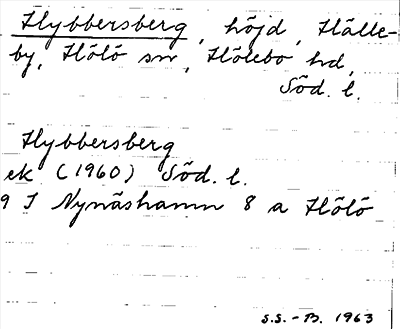 Hybbersberg, höjd, Hälle-
by, Hölö sn, Hölebo hd,
Söd. l.
Hybbersberg
ek (1960) Söd. l.
9 I Nynäshamn 8 a Hölö
S.S. - B. 1963